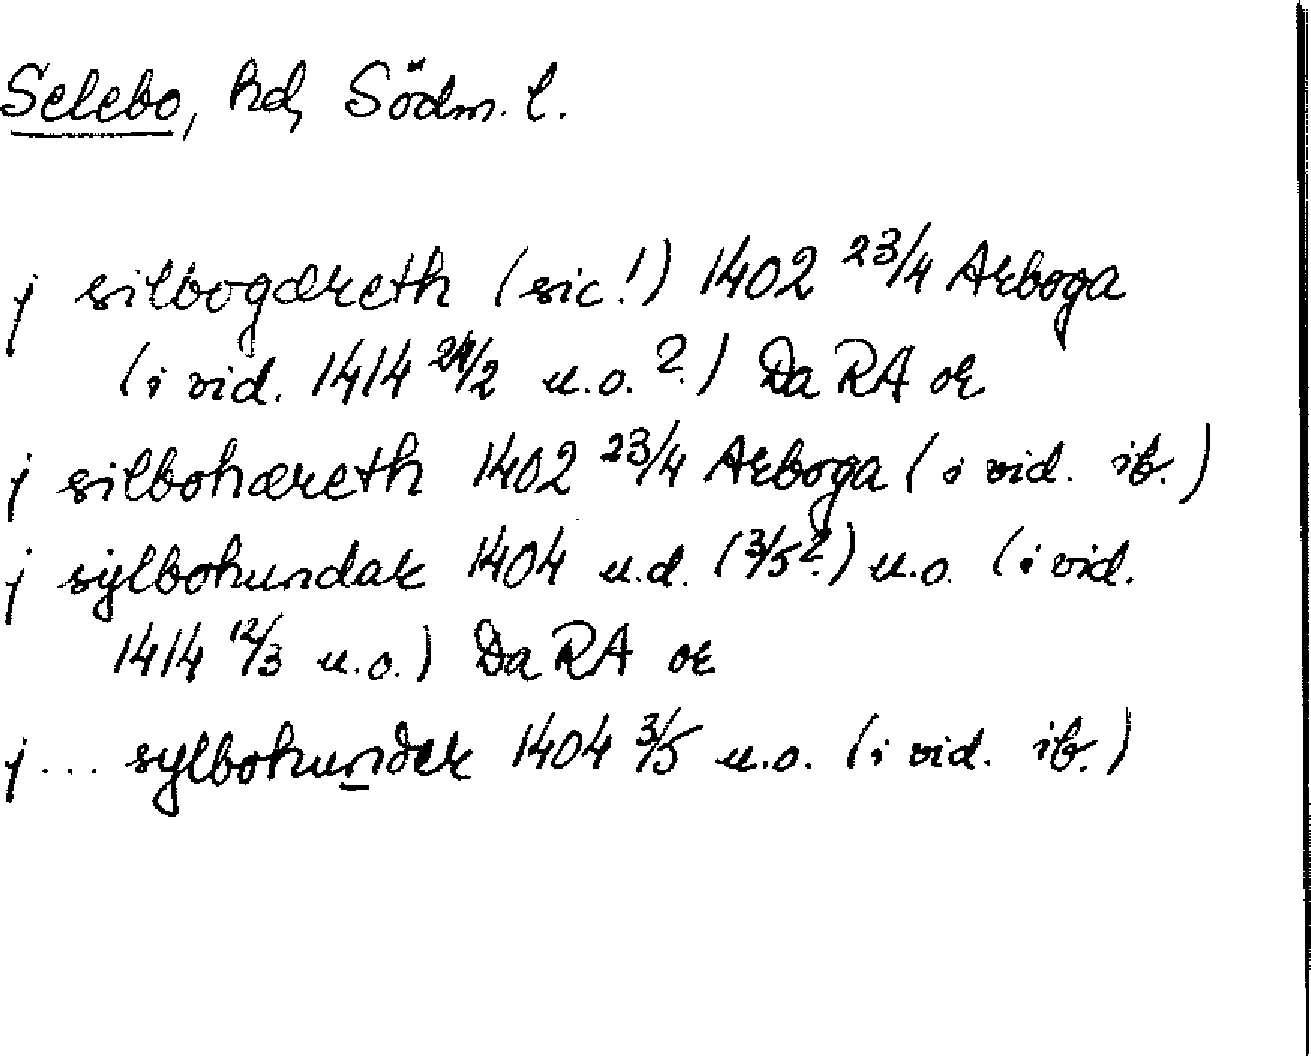 Selebo, hd, Södm. l.
j silbogæreth (sic!) 1402 23/4 Arboga
(i vid. 1414 24/2 u.o.?) Da RA or
j silbohæreth 1402 23/4 Arboga (i vid. ib.)
j sylbohundar 1404 u.d. (3/5?) u.o. (i vid.
1414 12/3 u.o.) Da RA or
j ... sylbohundær 1404 3/5 u.o. (i vid. ib.)